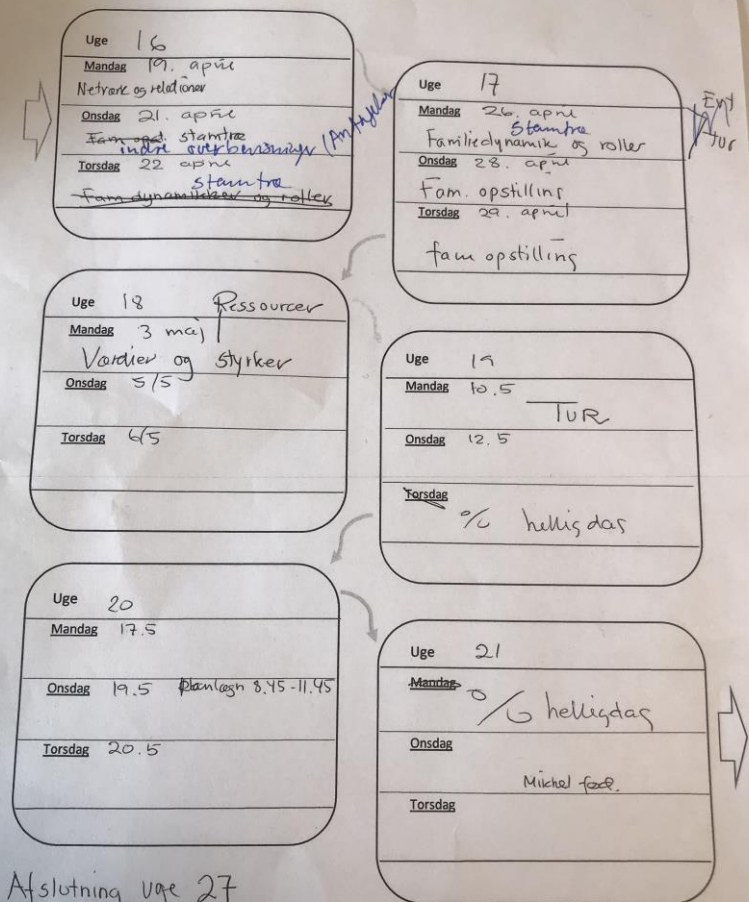 Uge 16
Mandag 19. april
Netværk og relationer
Onsdag 21. april
Fam opst. stamtræ
indre overbevisninger (Antagelser
Torsdag 22 april
stamtræ
Fam dynamikker og roller
Uge 17
Mandag 26. april
Stamtræ
Familiedynamik og roller
Onsdag 28. april
Fam. opstilling
Torsdag 29. april
fam opstilling
tur
Uge 18 Ressourcer
Mandag 3 maj
Værdier og styrker
Onsdag 5/5
Torsdag 6/5
Uge 19
Mandag 10.5
TUR
Onsdag 12.5
Torsdag
% helligdag
Uge 20
Mandag 17.5
Onsdag 19.5 planlægn 8.45-11.45
Torsdag 20.5
Uge 21
Mandag
% helligdag
Onsdag
Mikkel fød.
Torsdag
Afslutning uge 27